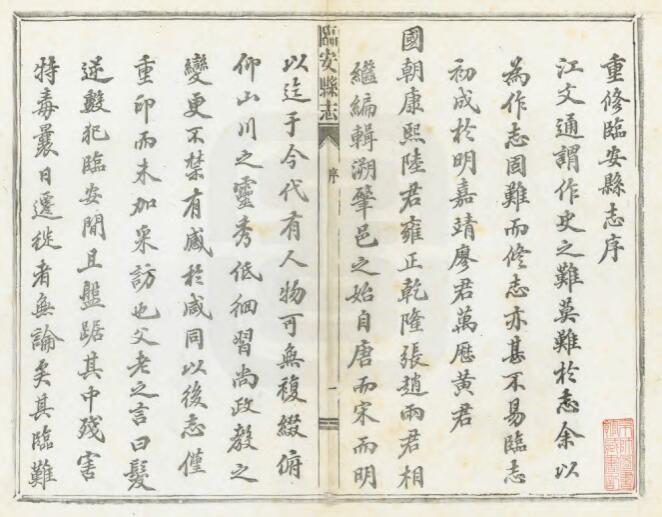 重修臨安縣志序
江文通謂作史之難莫難於志余以
為作志固難而修志亦甚不易臨志
初成於明嘉靖廖君萬厯黃君
國朝康熙陸君雍正乾隆張趙兩君相
繼編輯溯肇邑之始自唐而宋而明
臨安縣志
序
一
以迄于今代有人物可無複綴俯
仰山川之靈秀低徊習尚政教之
變更不禁有感於咸同以後志僅
重印而未加采訪也父老之言曰髮
逆數犯臨安間且盤踞其中殘害
特毒曩日遷徙者無論矣其臨難